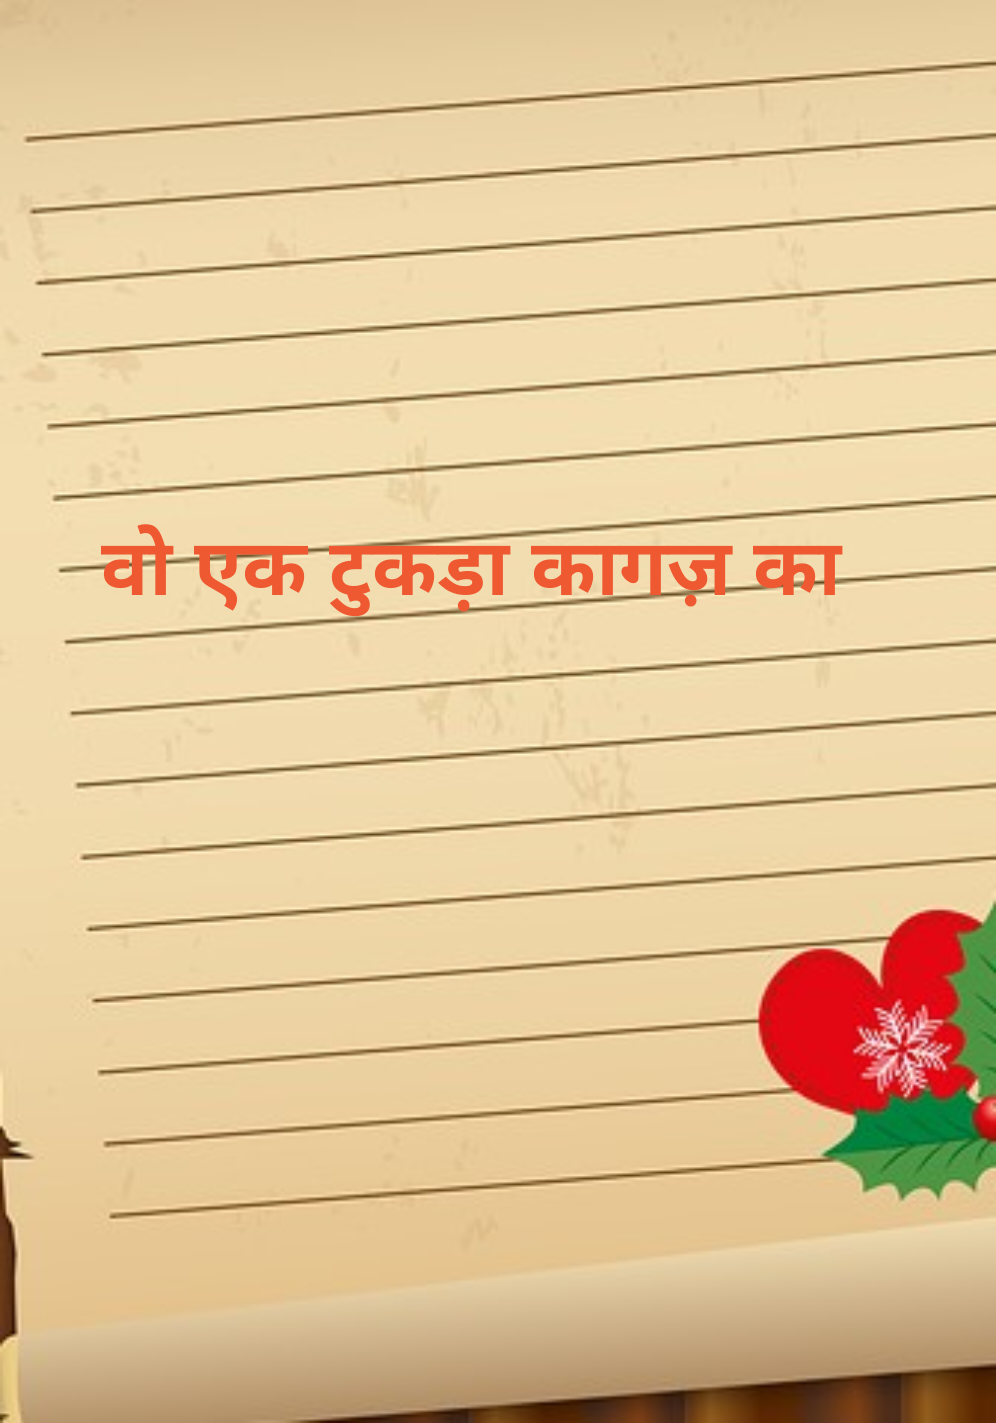 वो एक टुकड़ा कागज़ का